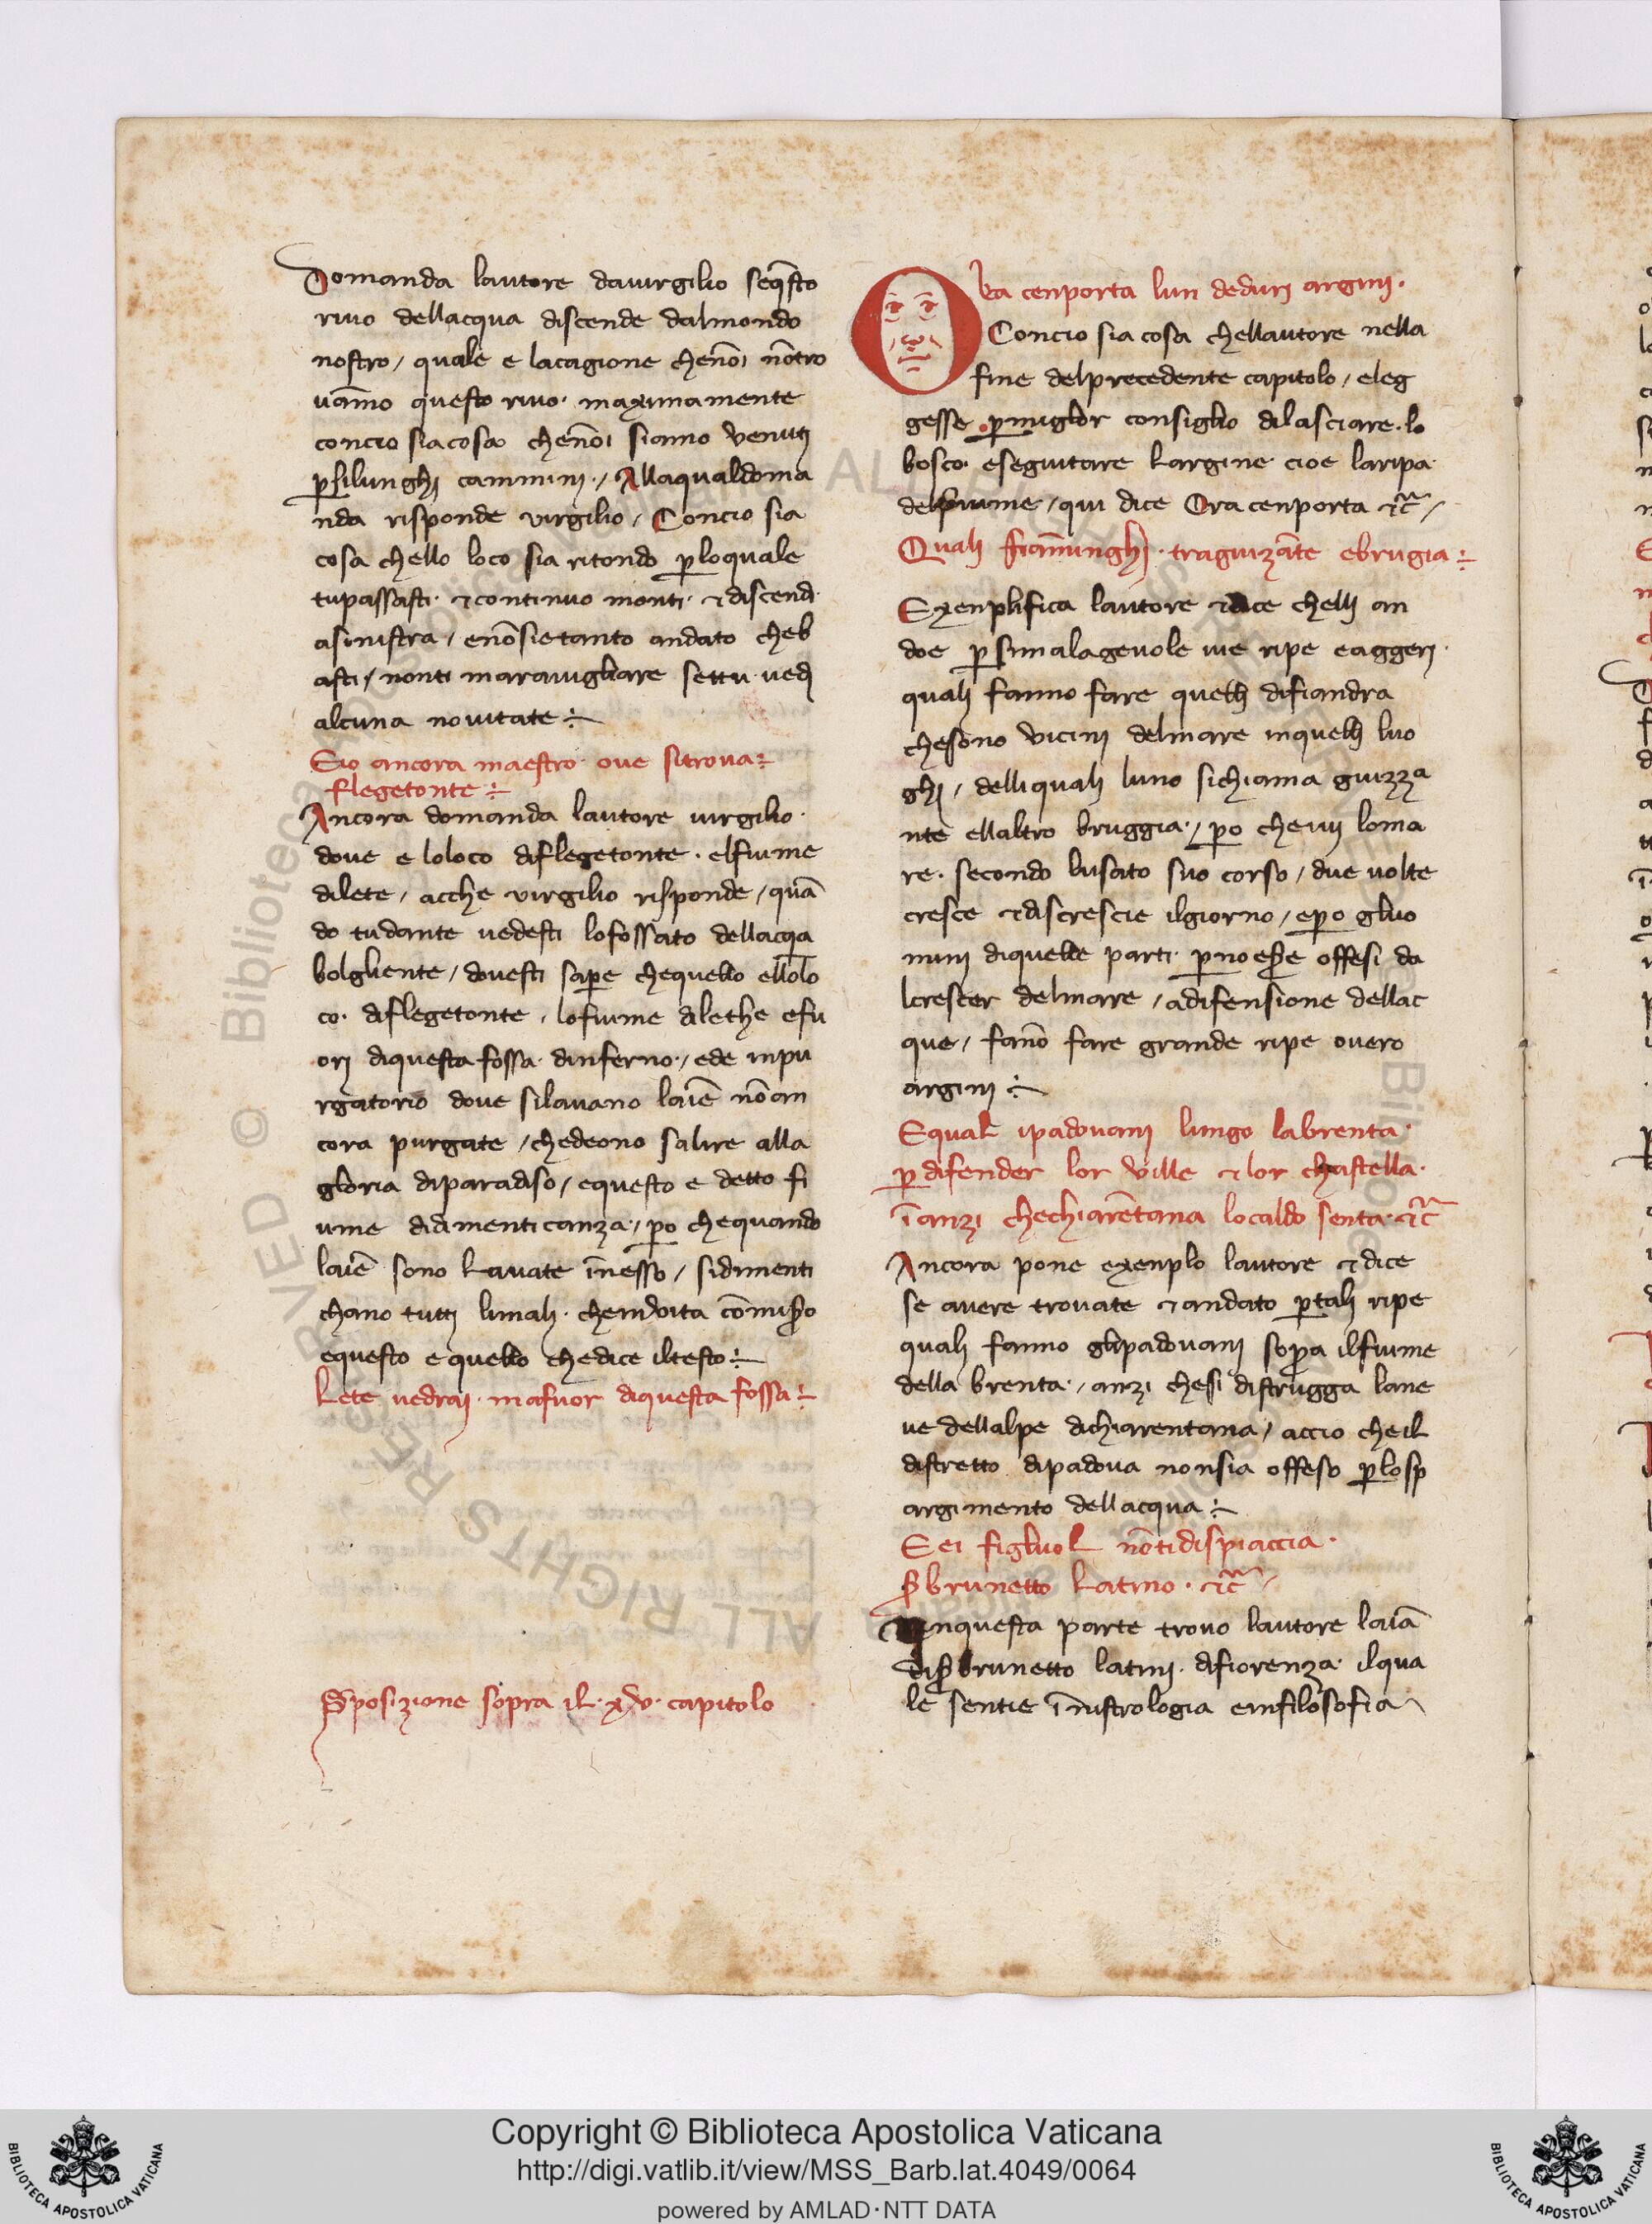 Domanda lautore dauirgilio seq̄sto
riuo dellacqua discende dalmondo
nostro / quale e lacagione chenōi nōtro
uāmo questo riuo · maximamente
concio siacosa chenōi siamo venuti
ꝑsilunghi cammini · / Allaqualdoma
nda risponde virgilio / Concio sia
cosa chello loco sia ritondo ꝑloquale
tupassasti · ⁊continuo monti · ⁊discendi ·
asinistra / enōsietanto andato cheb
asti / nonti marauigliare settu uedi
alcuna nouitate ÷
Eio ancora maestro oue sitroua ÷
flegetonte ÷
Ancora domanda lautore uirgilio ·
doue e loloco diflegetonte · elfiume
dilete / acche virgilio risponde / quā
do tudante uedesti lofossato dellacqa
bolgliente / douesti saꝑe chequello ellolo
co · diflegetonte / lofiume dilethe efu
ori diquesta fossa · dinferno · / ede inpu
rgatorio doue silauano laīe nōan
cora purgate / chedeono salire alla
gloria diparadiso / equesto e detto fi
ume didimenticanza · / ꝑo chequando
laīe sono Lauate īnesso / sidimenti
chano tutti limali · cheindoita cōmiso
equesto e quello chedice iltesto ÷
Lete uedrai · mafuor diquesta fossa ÷
Sposizione sopra il · xv · capitolo
Ora cenporta lun deduri argini ·
Concio sia cosa chellautore nella
fine delprecedente capitolo / eleg
gesse · ꝑmiglior consiglio dilasciare · lo
bosco · eseguitare Largine cioe laripa
delfiume / qui dice Ora cenporta ⁊c̄ /
Quali fiāmunghi · traguizāte ebrugia ÷
Exenplifica lautore ⁊dice chelli an
doe ꝑsimalageuole uie ripe eaggeri ·
quali fanno fare quelli difiandra
chesono vicini delmare inquelli luo
ghi / delliquali luno sichiama guizza
nte ellaltro bruggia · / ꝑo cheiui loma
re · secondo lusato suo corso / due uolte
cresce ⁊discrescie ilgiorno / eꝑo gliuo
mini diquelle parti · ꝑnoesse offesi da
lcrescer delmare / adifensione dellac
que / fanō fare grande ripe ouero
argini ÷
Equali ipadouani lungo labrenta ·
ꝑdifender lor ville ⁊lor chastella ·
īanzi chechiarētana localdo senta · ⁊c̄
Ancora pone exenplo lautore ⁊dice
se auere trouate ⁊andato ꝑtali ripe
quali fanno glipadouani sopra ilfiume
della brenta · / anzi chesi distrugga lane
ue dellalpe dichiarentana / accio cheil
distretto dipadoua nonsia offeso ꝑlosp
argimento dellacqua ÷
Eei figliuol nōtidispiaccia ·
s̄ brunetto Latino · ⁊c̄ /
Inquesta parte trouo lautore laīa
dis̄ brunetto latini · difiorenza · ilqua
le sentie īnistrologia einfilosofia
Copyright © Biblioteca Apostolica Vaticana
http://digi.vatlib.it/view/MSS_Barb.lat.4049/0064
powered by AMLAD·NTT DATA
BIBLIOTECA APOSTOLICA VATICANA
BIBLIOTECA APOSTOLICA VATICANA